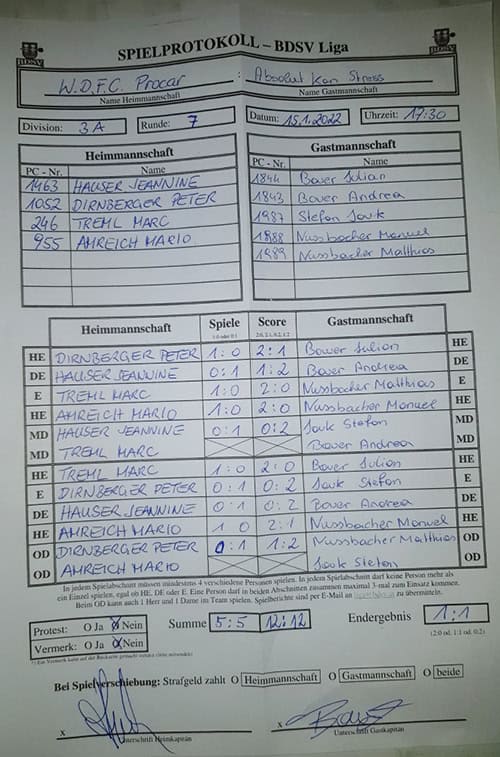 SPIELPROTOKOLL – BDSV Liga
BDSV BDSV
W.D.F.C. Procar : Absolut Kan Stress
Name Heimmannschaft Name Gastmannschaft
Division: 3A Runde: 7 Datum: 15.1.2022 Uhrzeit: 17:30
Heimmannschaft Gastmannschaft
PC - Nr. Name PC - Nr. Name
1463 HAUSER JEANNINE 1844 Bauer Julian
1052 DIRNBERGER PETER 1843 Bauer Andrea
246 TREML MARC 1987 Stefan Jauk
955 AMREICH MARIO 1988 Nussbacher Manuel
1989 Nussbacher Matthias
Heimmannschaft Spiele Score Gastmannschaft
1:0 oder 0:1 2:0, 2:1, 0:2, 1:2
HE DIRNBERGER PETER 1:0 2:1 Bauer Julian HE
DE HAUSER JEANNINE 0:1 1:2 Bauer Andrea DE
E TREML MARC 1:0 2:0 Nussbacher Matthias E
HE AMREICH MARIO 1:0 2:0 Nussbacher Manuel HE
MD HAUSER JEANNINE 0:1 0:2 Jauk Stefan MD
MD TREML MARC Bauer Andrea MD
HE TREML MARC 1:0 2:0 Bauer Julian HE
E DIRNBERGER PETER 0:1 0:2 Jauk Stefan E
DE HAUSER JEANNINE 0:1 0:2 Bauer Andrea DE
HE AMREICH MARIO 1 0 2:1 Nussbacher Manuel HE
OD DIRNBERGER PETER 0:1 1:2 Nussbacher Matthias OD
OD AMREICH MARIO Jauk Stefan OD
In jedem Spielabschnitt müssen mindestens 4 verschiedene Personen spielen. In jedem Spielabschnitt darf keine Person mehr als
ein Einzel spielen, egal ob HE, DE oder E. Eine Person darf in beiden Abschnitten zusammen maximal 3-mal zum Einsatz kommen.
Beim OD kann auch 1 Herr und 1 Dame im Team spielen. Spielberichte sind per E-Mail an zu übermitteln.
Protest: O Ja O Nein Summe 5:5 12:12 Endergebnis 1:1
Vermerk: O Ja O Nein (2:0 od. 1:1 od. 0:2)
*) Ein Vermerk kann auf der Rückseite gemacht werden
Bei Spielverschiebung: Strafgeld zahlt O Heimmannschaft O Gastmannschaft O beide
x x
Unterschrift Heimkapitän Unterschrift Gastkapitän